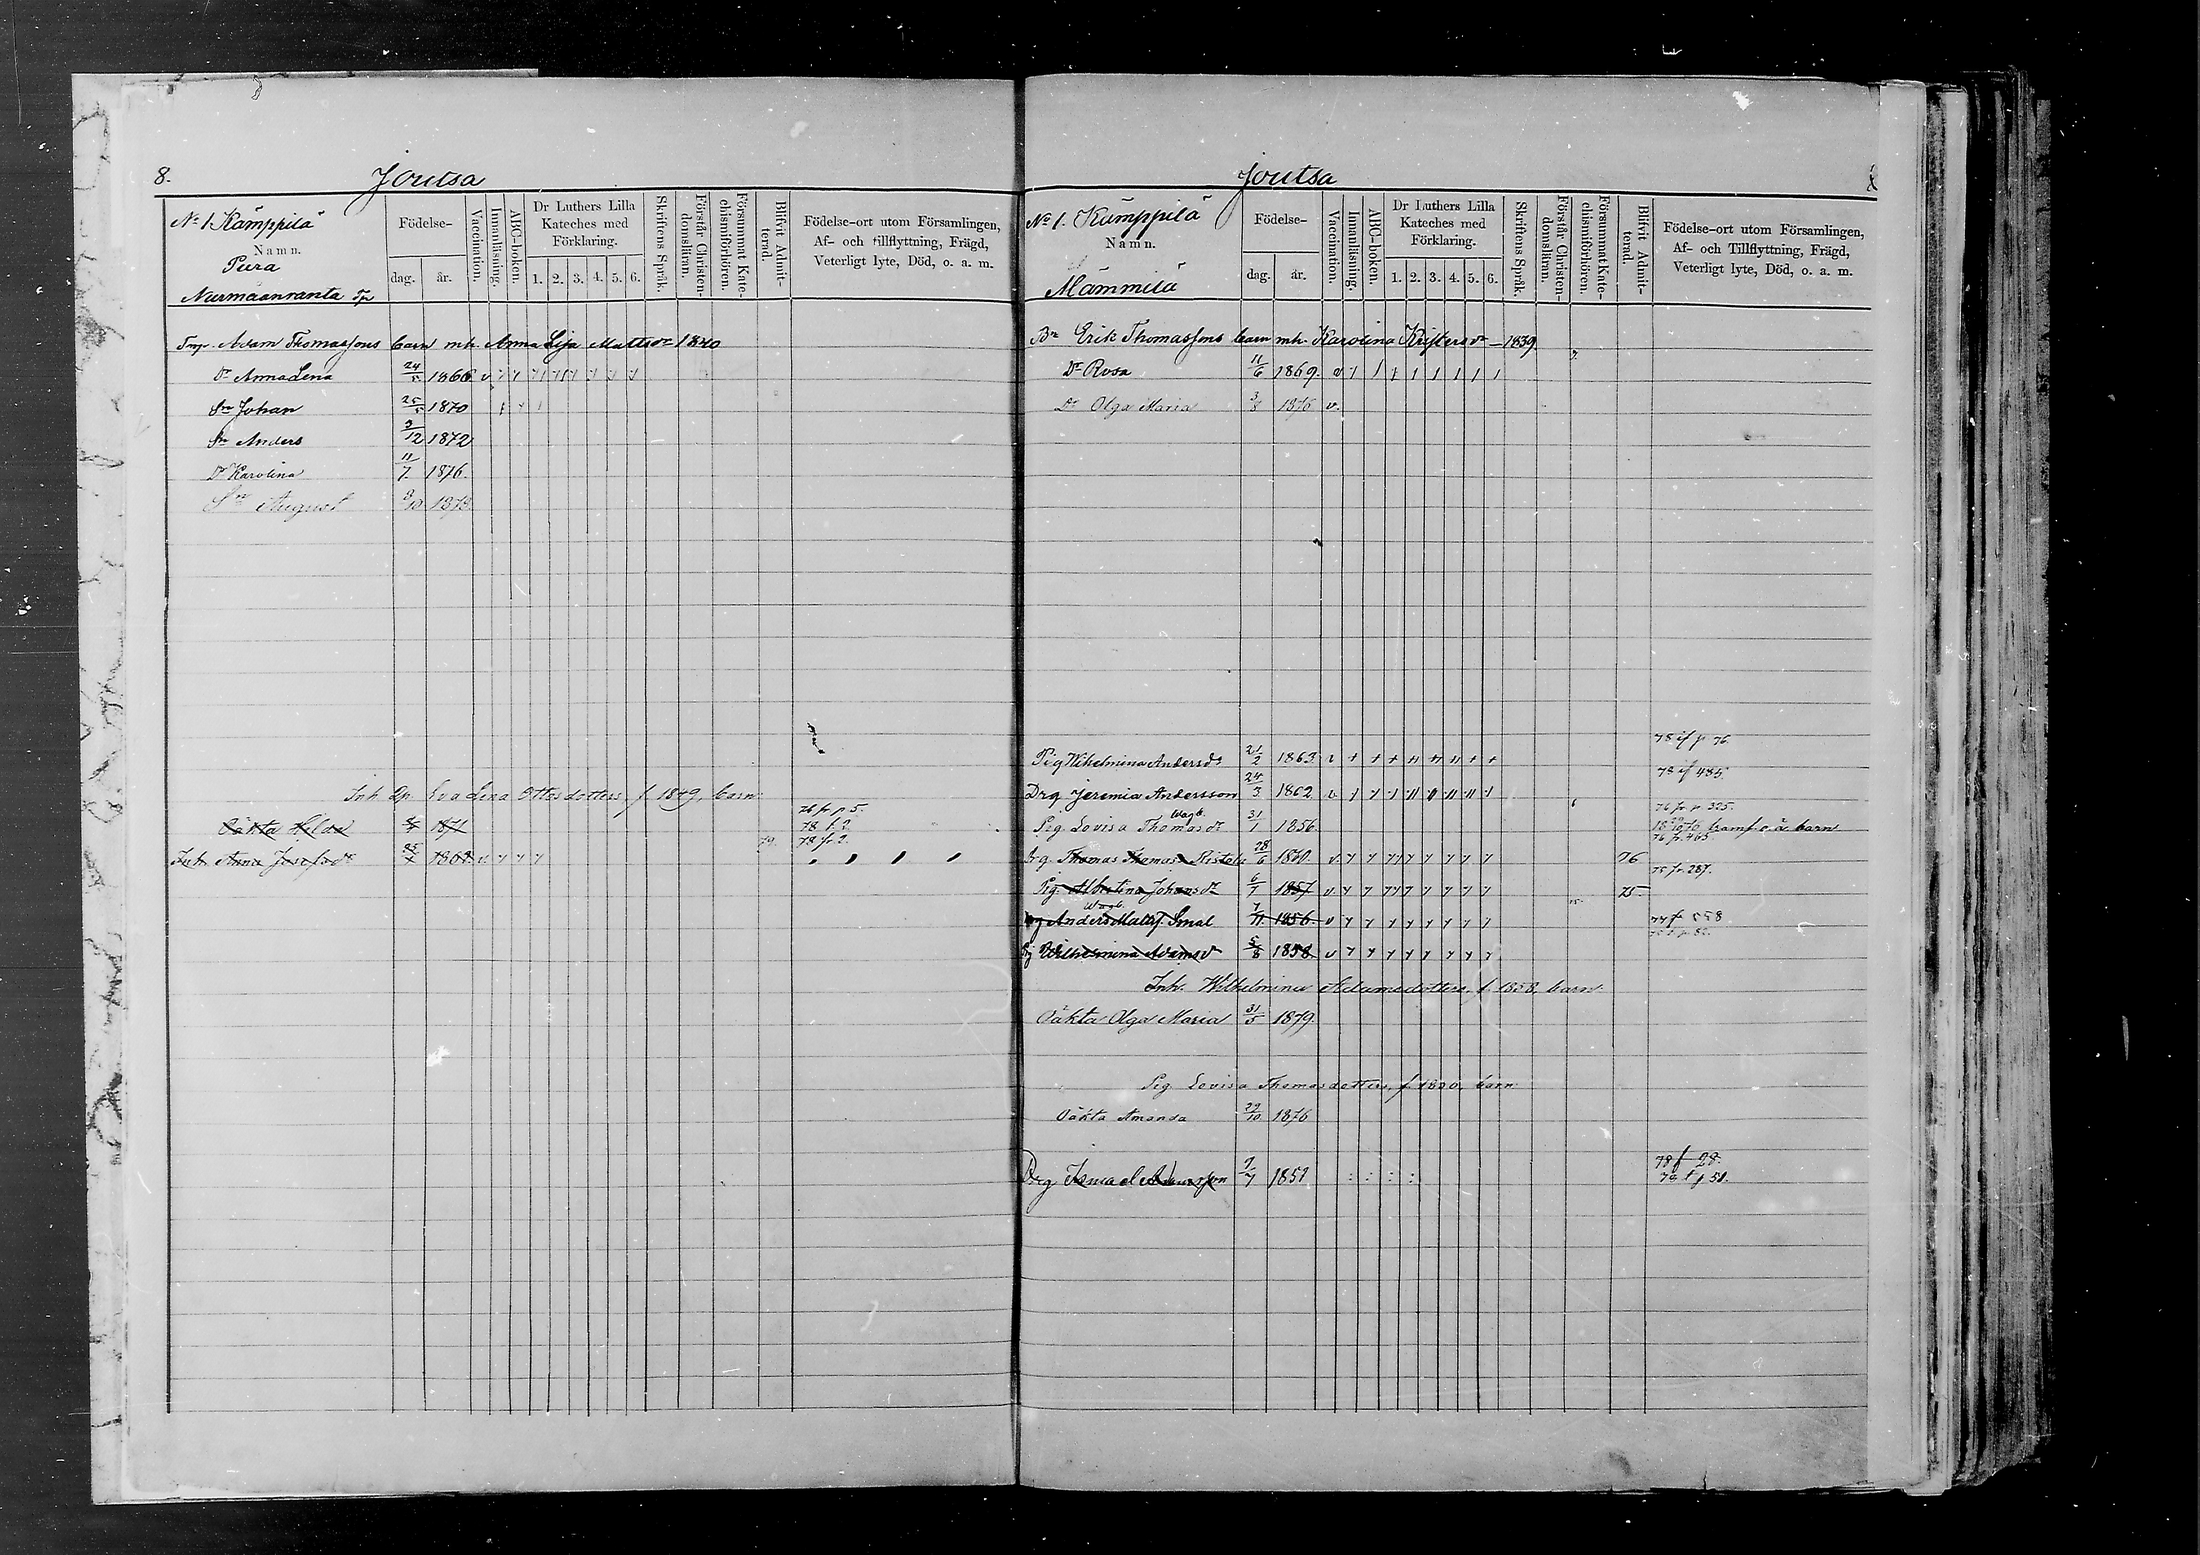 8.
Joutsa
No 1. Kämppilä
Namn.
Pura
Nurmaanranta Tp
Födelse-
dag. år.
Vaccination.
Innanläsning.
ABC-boken.
Dr Luthers Lilla
Kateches med
Förklaring.
1. 2. 3. 4. 5. 6.
Skriftens Språk.
Förstår Christen-
domsläran.
Försummat Kate-
chismiförhören.
Blifvit Admit-
terad.
Födelse-ort utom Församlingen,
Af- och tillflyttning, Frägd,
Veterligt lyte, Död, o. a. m.
Tmp. Adam Thomassons barn mh. Anna Lisa Mattsdr 1840
Dr Anna Lena 24/5 1866 v
Sn Johan 25/5 1870
Sn Anders 9/12 1872
Dr Karolina 11/7 1876.
Sn August 8/10 1878
Inh. Qp. Eva Lena Ottosdotters, f. 1849, barn:
76 fr p 5.
Oäkta Hilda 1871 78 t. 2.
79. 78 fr 2.
Inh. Anna Josefsdr 1862 v
Joutsa
No 1. Kämppilä
Namn.
Mämmilä
Födelse-
dag. år.
Vaccination.
Innanläsning.
ABC-boken.
Dr Luthers Lilla
Kateches med
Förklaring.
1. 2. 3. 4. 5. 6.
Skriftens Språk.
Förstår Christen-
domsläran.
Försummat Kate-
chismiförhören.
Blifvit Admit-
terad.
Födelse-ort utom Församlingen,
Af- och Tillflyttning, Frägd,
Veterligt lyte, Död, o. a. m.
Bn Erik Thomassons barn mh. Karolina Kristersdr 1839
Dr Rosa 11/6 1869. v
Dr Olga Maria 3/8 1876 v.
78 if p 76.
Pig Wilhelmina Andersdr 21/2 1863 v
78 if 485.
Drg Jeremia Andersson 24/3 1862 v
76 fr p 325.
Pig. Lovisa Thomasdr 31/1 1856. framf. o. ä. barn
76 fr. 465.
Drg. Thomas Thomass. Ristola 28/6 1860. v. 76
75 fr. 287.
Pig. Albertina Johansdr 6/7 1857 v 75
Drg Anders Mattss. Smal 7/11 1856. v 77 f 558
Pig Wilhelmina Adamsd 5/8 1858 v
Inh. Wilhelmina Adamsdotters, f. 1858, barn:
Oäkta Olga Maria 31/5 1879.
Pig. Lovisa Thomasdotters, f. barn:
Oäkta Amanda 29/10 1876
78 f 28.
Drg Ismael Adamsson 9/7 1851 79 t p 51.